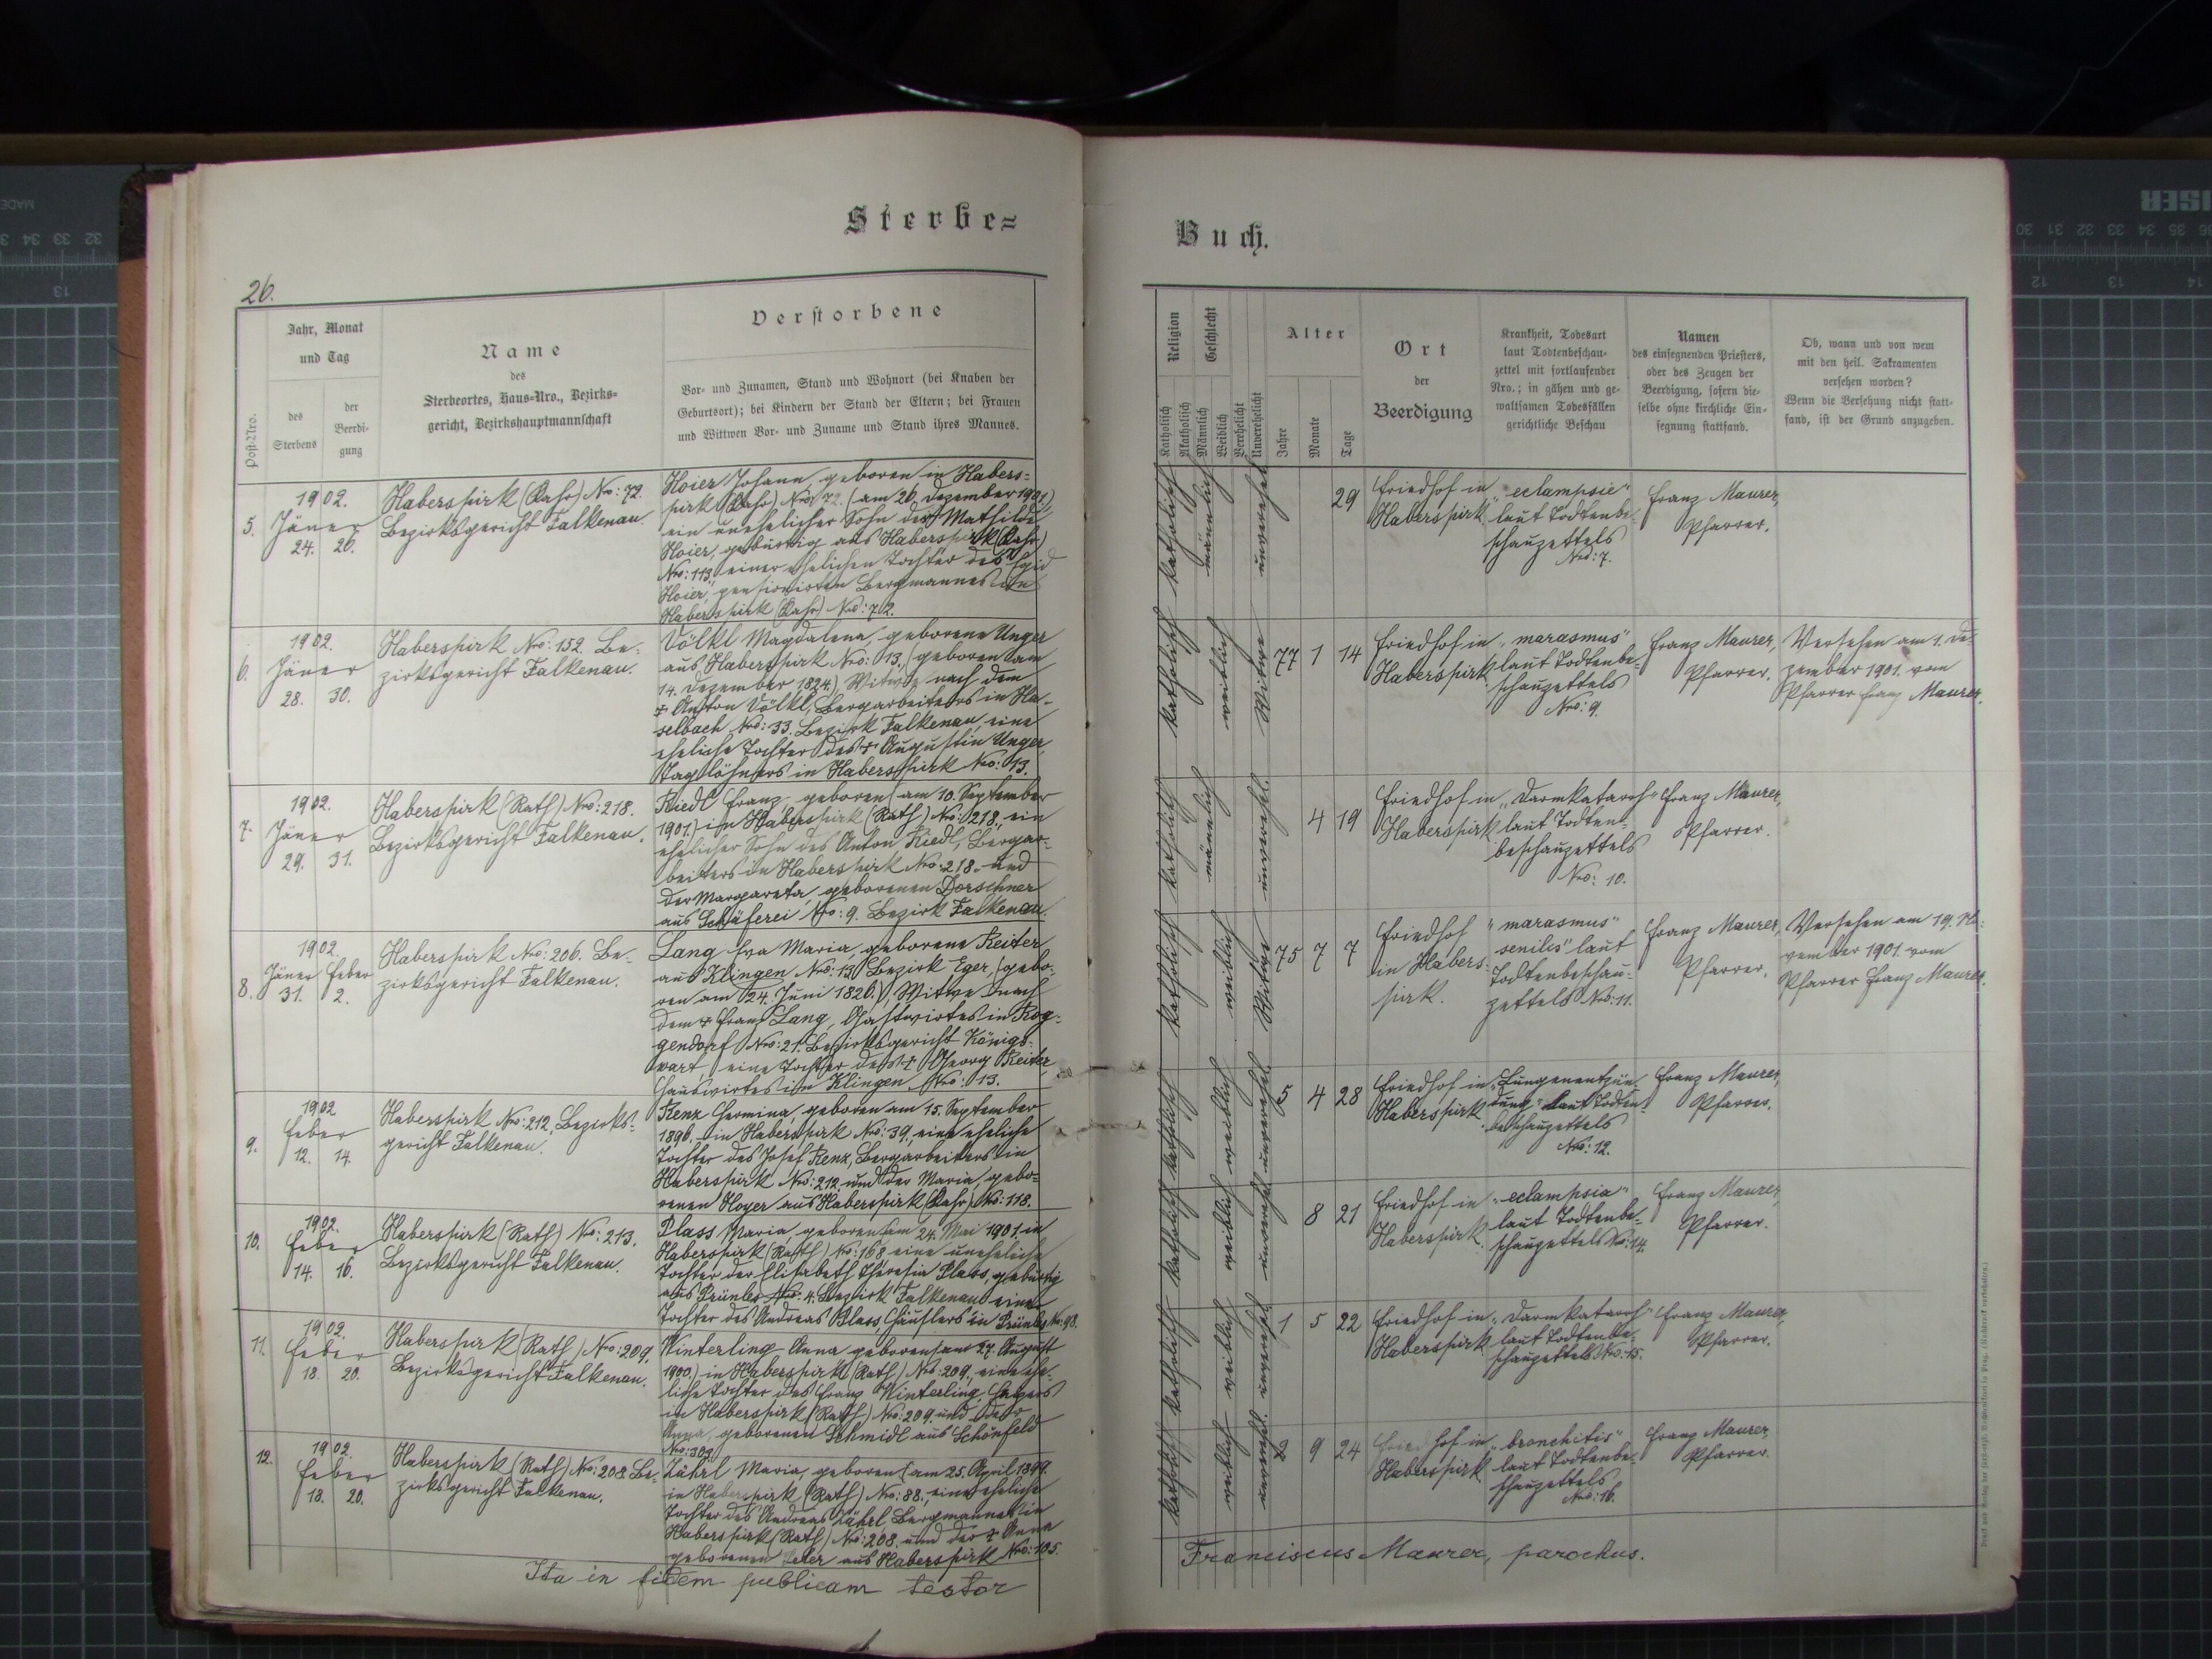 Sterbe=
Buch.
26.
Post-Nro.
Jahr, Monat
und Tag
des
Sterbens
der
Beerdi-
gung
Name
des
Sterbeortes, Haus-Nro., Bezirks-
gericht, Bezirkshauptmannschaft
Verstorbene
Vor- und Zunamen, Stand und Wohnort (bei Knaben der
Geburtsort); bei Kindern der Stand der Eltern; bei Frauen
und Wittwen Vor- und Zuname und Stand ihres Mannes.
Religion
Katholisch
Akatholisch
Geschlecht
Männlich
Weiblich
Verehelicht
Unverehelicht
Alter
Jahre
Monate
Tage
Ort
der
Beerdigung
Krankheit, Todesart
laut Todtenbeschau-
zettel mit fortlaufender
Nro.; in gähen und ge-
waltsamen Todesfällen
gerichtliche Beschau
Namen
des einsegnenden Priesters,
oder des Zeugen der
Beerdigung, sofern die-
selbe ohne kirchliche Ein-
segnung stattfand.
Ob, wann und von wem
mit den heil. Sakramenten
versehen worden?
Wenn die Versehung nicht statt-
fand, ist der Grund anzugeben.
5.
1902.
Jäner
24. 26.
Haberspirk (Kahr) Nro: 72.
Bezirksgericht Falkenau.
Hoier Johann, geboren in Habers=
pirk (Kahr) Nro: 72. (am 26. Dezember 1901)
ein unehelicher Sohn der Mathilde
Hoier, gebürtig aus Haberspirk (Kahr)
Nro: 113, einer ehelichen Tochter des Egid
Hoier, pensionirten Bergmannes in
Haberspirk (Kahr) Nro: 72.
katholisch
männlich
unverehel.
29
Friedhof in
Haberspirk
„eclampsie"
laut Todtenbe-
schauzettels
Nro: 7.
Franz Maurer,
Pfarrer.
6.
1902.
Jäner
28. 30.
Haberspirk Nro: 152. Be-
zirksgericht Falkenau.
Völkl Magdalena, geborene Unger
aus Haberspirk Nro: 13., (geboren am
14. Dezember 1824.) Witwe nach dem
+ Anton Völkl, Bergarbeiters in Ha-
selbach Nro: 33. Bezirk Falkenau, eine
eheliche Tochter des + Augustin Unger,
Taglöhners in Haberspirk Nro: 13.
katholisch
weiblich
Witwe
77 1 14
Friedhof in
Haberspirk
„marasmus"
laut Todtenbe-
schauzettels
Nro: 9.
Franz Maurer,
Pfarrer.
Versehen am 1. De-
zember 1901. vom
Pfarrer Franz Maurer.
7.
1902.
Jäner
29. 31.
Haberspirk (Rath) Nro: 218.
Bezirksgericht Falkenau.
Riedl Franz, geboren (am 10. September
1901.) in Haberspirk (Rath) Nro: 218., ein
ehelicher Sohn des Anton Riedl, Bergar-
beiters in Haberspirk Nro: 218. und
der Margareta, geborenen Dorschner
aus Schäferei Nro: 9. Bezirk Falkenau.
katholisch
männlich
unverehel.
4 19
Friedhof in
Haberspirk
„Darmkatarrh"
laut Todten-
beschauzettels
Nro: 10.
Franz Maurer,
Pfarrer.
8.
1902.
Jäner Feber
31. 2.
Haberspirk Nro: 206. Be-
zirksgericht Falkenau.
Lang Eva Maria, geborene Reiter
aus Klingen Nro: 13. Bezirk Eger, (gebo-
ren am 24. Juni 1826.), Witwe nach
dem + Franz Lang, Gastwirtes in Rog-
gendorf Nro: 21. Bezirksgericht Königs-
wart, eine Tochter des + Georg Reiter,
Hauswirtes in Klingen Nro: 13.
katholisch
weiblich
Witwe
75 7 7
Friedhof
in Habers-
pirk.
"marasmus
senilis" laut
Todtenbeschau-
zettels Nro: 11.
Franz Maurer,
Pfarrer.
Versehen am 19. No-
vember 1901. vom
Pfarrer Franz Maurer.
9.
1902
Feber
12. 14.
Haberspirk Nro: 212, Bezirks-
gericht Falkenau.
Renz Hermina, geboren am 15. September
1896. in Haberspirk Nro: 39, eine eheliche
Tochter des Josef Renz, Bergarbeiters in
Haberspirk Nro: 212 und der Maria, gebo-
renen Hoyer aus Haberspirk (Kahr) Nro: 118.
katholisch
weiblich
unverehel.
5 4 28
Friedhof in
Haberspirk
„Lungenentzün-
dung" laut Todten-
beschauzettels
Nro: 12.
Franz Maurer,
Pfarrer.
10.
1902.
Feber
14. 16.
Haberspirk (Rath) Nro: 213.
Bezirksgericht Falkenau.
Plass Maria, geboren am 24. Mai 1901. in
Haberspirk (Rath) Nro: 168 eine uneheliche
Tochter der Elisabeth Theresia Plass, gebürtig
aus Prünles Nro: 4. Bezirk Falkenau einer
Tochter des Andreas Plass, Häuslers in Prünles Nro: 98.
katholisch
weiblich
unverehel.
8 21
Friedhof in
Haberspirk.
„eclampsia"
laut Todtenbe-
schauzettels Nro: 14.
Franz Maurer,
Pfarrer.
11.
1902.
Feber
18. 20.
Haberspirk (Rath) Nro: 209.
Bezirksgericht Falkenau.
Winterling Anna geboren (am 27. August
1900.) in Haberspirk (Rath) Nro: 209., eine ehe-
liche Tochter des Franz Winterling,
in Haberspirk (Rath) Nro: 209. und der
Anna, geborenen Schmidl aus Schönfeld
Nro: 309
katholisch
weiblich
unverehel.
1 5 22
Friedhof in
Haberspirk
„Darmkatarrh"
laut Todtenbe-
schauzettels Nro: 15.
Franz Maurer,
Pfarrer.
12.
1902.
Feber
18. 20.
Haberspirk (Rath) Nro: 208. Be-
zirksgericht Falkenau.
Zährl Maria, geboren (am 25. April 1899.
in Haberspirk (Rath) Nro: 88., eine eheliche
Tochter des Andreas Zährl, Bergmannes in
Haberspirk (Rath) Nro: 208. und der + Anna
geborenen aus Haberspirk Nro: 105.
katholisch
weiblich
unverehel.
2 9 24
Friedhof in
Haberspirk
„bronchitis"
laut Todtenbe-
schauzettels
Nro: 16.
Franz Maurer,
Pfarrer.
Ita in fidem publicam testor
Franciscus Maurer, parochus.